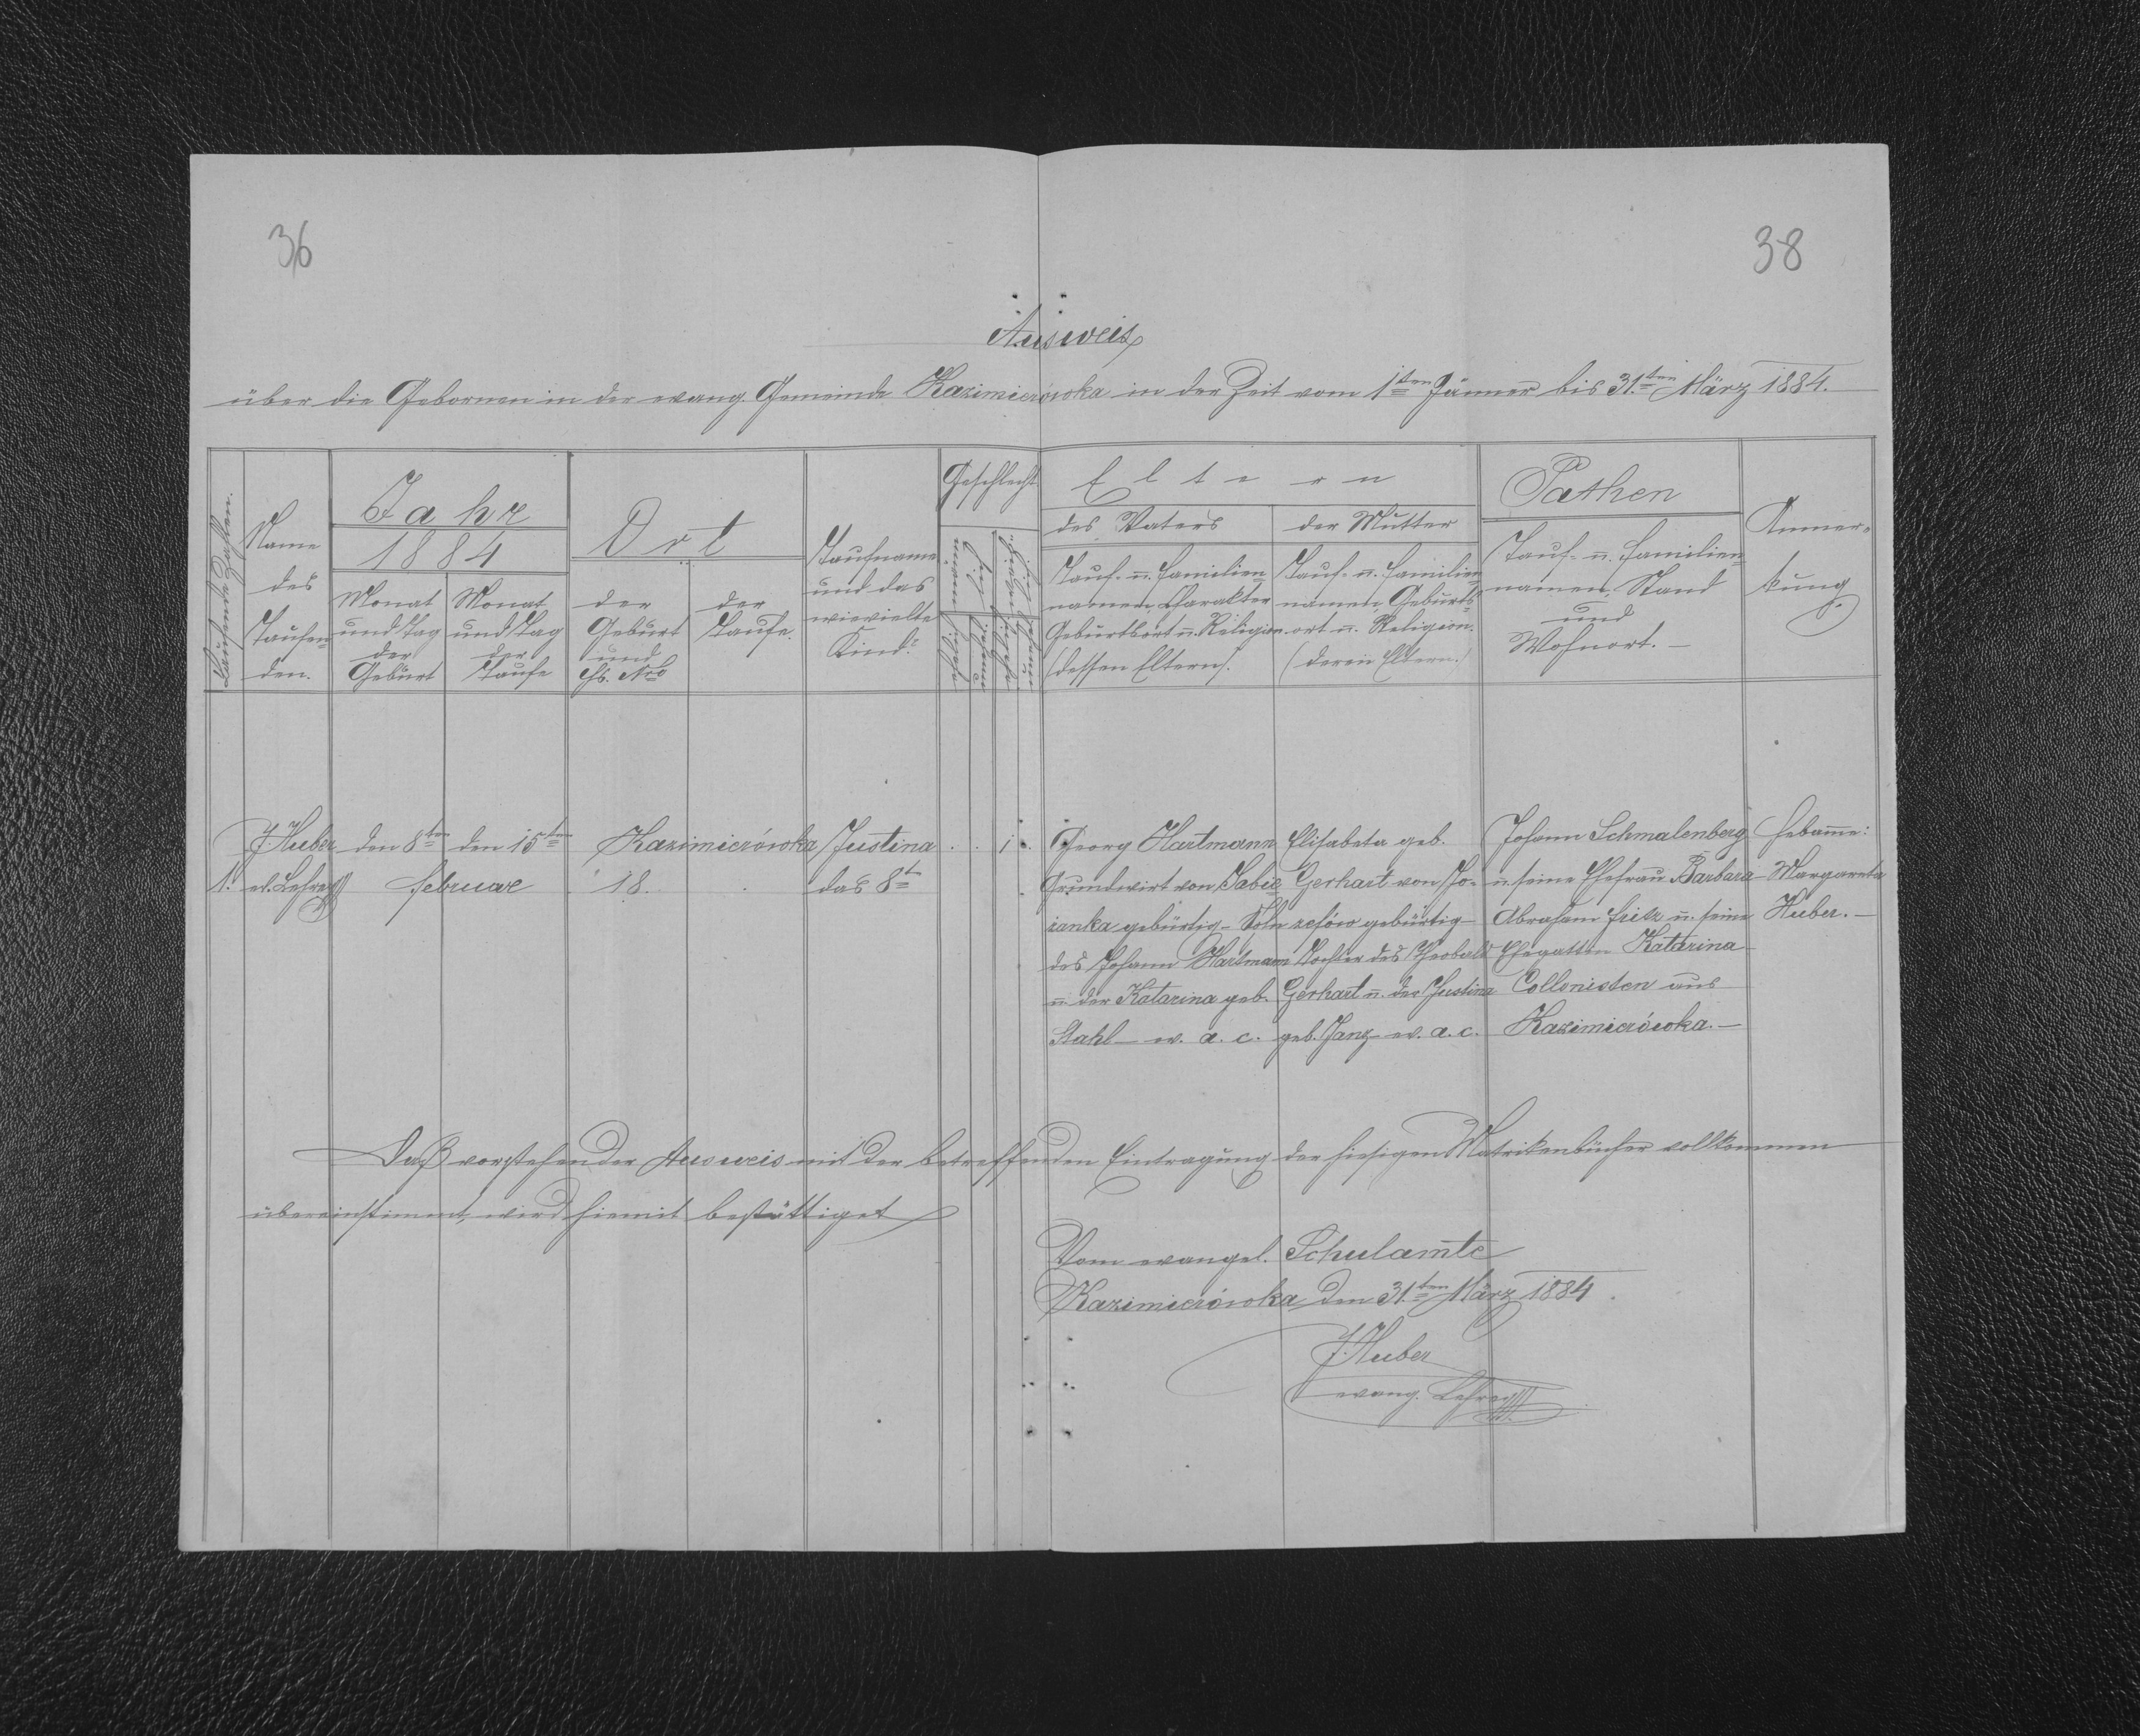 36
38
Ausweis
über die Gebornen in der evang. Gemeinde Kazimierówka in der Zeit vom 1ten Jänner bis 31.ten März 1884.
Laufende Zahlen.
Name
des
Taufen-
den.
Jahr
1884
Monat
und Tag
der
Geburt
Monat
und Tag
der
Taufe
Ort
der
Geburt
und
Hs. Nro
der
Taufe.
Taufname
und das
wievielte
Kind?
Geschlecht
Eltern
des Vaters
Tauf- u. Familien-
namen, Charakter
Geburtsort u. Religion
(dessen Eltern).
der Mutter
Tauf- u. Familien-
namen, Geburts-
ort u. Religion.
(deren Eltern.)
Pathen
Tauf- u. Familien-
namen, Stand
und
Wohnort. –
Anmer-
kung.
1.
J Huber
ev. Lehrer
den 8ten
den 15ten
Februar
Kazimierówka
18.
Justina
das 8te
1
Georg Hartmann
Grundwirt von Sabie
zanka gebürtig – Sohn
des Johann Hartmann
u. der Katarina geb.
Stahl – ev. a. c.
Elisabeta geb.
Gerhart von Jo-
zefów gebürtig –
Tochter des Theobald
Gerhart u. der Justina
geb. Janz – ev. a. c.
Johann Schmalenberg
u. seine Ehefrau Barbara –
Abraham Fritz u. seine
Ehegattin Katarina
Collonisten aus
Kazimierówka. –
Hebame:
Margareta
Huber. –
Daß vorstehender Ausweis mit der betreffenden Eintragung der hiesigen Matrikenbücher vollkommen
übereinstimmt, wird hiemit bestättiget
Vom evangel. Schulamte
Kazimierówka den 31.ten März 1884.
J. Huber
evang. Lehrer